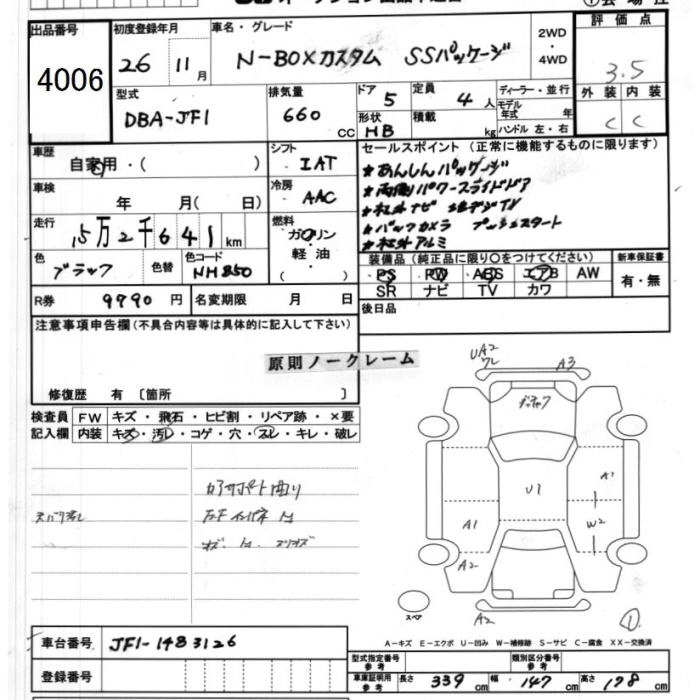 出品番号
4006
初度登録年月
26 11月
車名・グレード
N-BOXカスタム SSパッケージ
2WD・4WD
評価点
3.5
外装 内装
C C
型式
DBA-JF1
排気量
660 CC
ドア 5
定員 4人
形状 HB
積載 kg
ディーラー・並行
モデル年式 年
ハンドル 左・右
車歴
自家用・( )
シフト
IAT
セールスポイント (正常に機能するものに限ります)
★あんしんパッケージ
★両側パワースライドドア
★社外ナビ 地デジTV
★バックカメラ プッシュスタート
★社外アルミ
車検
年 月( 日)
冷房
AAC
走行
5万2千641km
燃料
ガソリン・軽油
( )
色
ブラック
色替
色コード
NH850
装備品(純正品に限り○をつけてください)
PS PW ABS エアB AW
SR ナビ TV カワ
新車保証書
有・無
R券 9990円
名変期限 月 日
後日品
注意事項申告欄(不具合内容等は具体的に記入して下さい)
原則ノークレーム
修復歴 有 〔箇所 〕
検査員記入欄
FW キズ・飛石・ヒビ割・リペア跡・×要
内装 キズ・汚レ・コゲ・穴・スレ・キレ・破レ
UA2
ワレ
A3
U1
A1
A1
W2
A2
A2
スペア
A-キズ E-エクボ U-凹み W-補修跡 S-サビ C-腐食 XX-交換済
車台番号 JF1-1483126
登録番号
型式指定番号 参考
類別区分番号 参考
車庫証明用 参考 長さ 339cm 幅 147cm 高さ 178cm